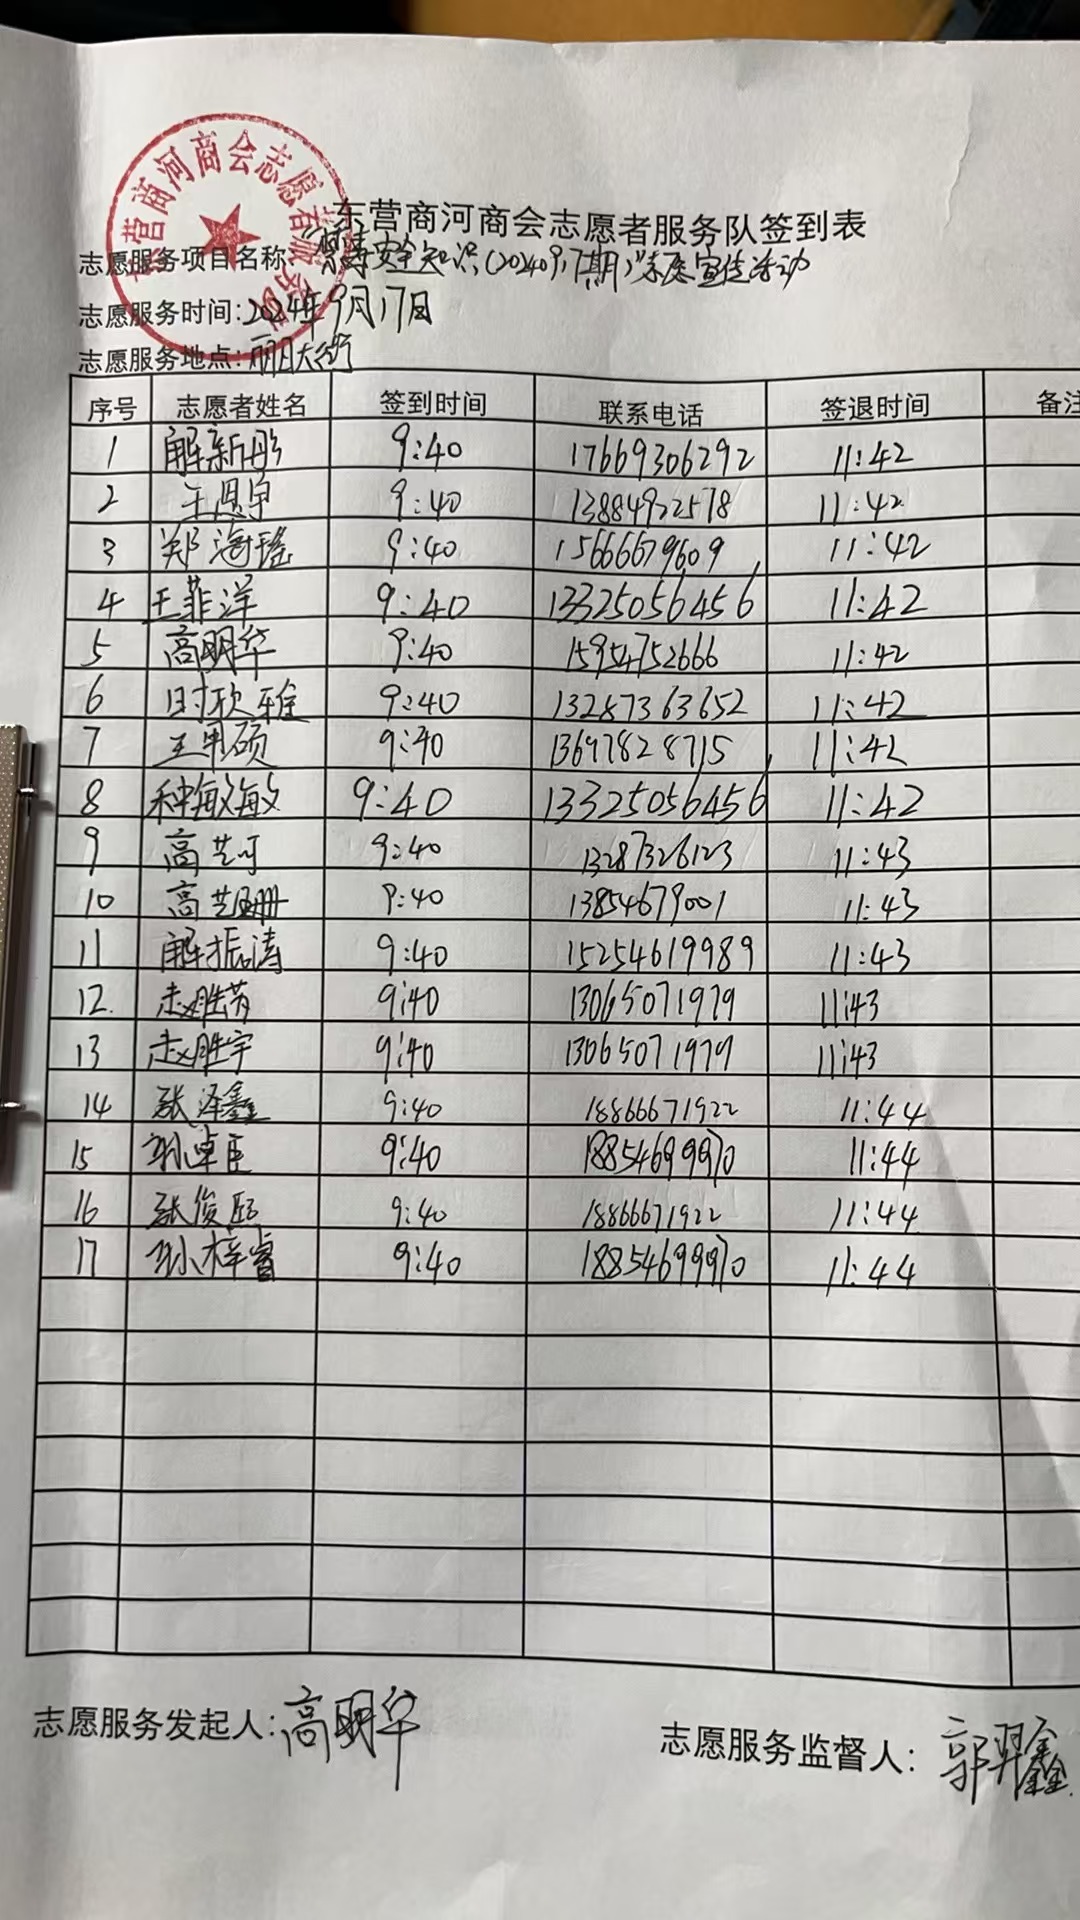 东营商河商会志愿者服务队
东营商河商会志愿者服务队签到表
志愿服务项目名称:安全知识(20240917期)"志愿宣传活动
志愿服务时间:2024年9月17日
志愿服务地点:大街
序号 志愿者姓名 签到时间 联系电话 签退时间 备注
1 解新彤 9:40 17669306292 11:42
2 王恩宇 9:40 13884922578 11:42
3 郑海瑶 9:40 15666679609 11:42
4 王菲洋 9:40 13325056456 11:42
5 高明华 9:40 15954752666 11:42
6 时欣雅 9:40 13287363652 11:42
7 王硕 9:40 13697828715 11:42
8 种敏敏 9:40 13325056456 11:42
9 高艺可 9:40 13287326123 11:43
10 高艺珊 9:40 13854679001 11:43
11 解振涛 9:40 15254619989 11:43
12. 赵胜 9:40 13065071979 11:43
13 赵胜宇 9:40 13065071979 11:43
14 张泽鑫 9:40 18866671922 11:44
15 孙卓臣 9:40 18854699970 11:44
16 张俊熙 9:40 18866671922 11:44
17 孙梓睿 9:40 18854699970 11:44
志愿服务发起人:高明华
志愿服务监督人:郭羿鑫